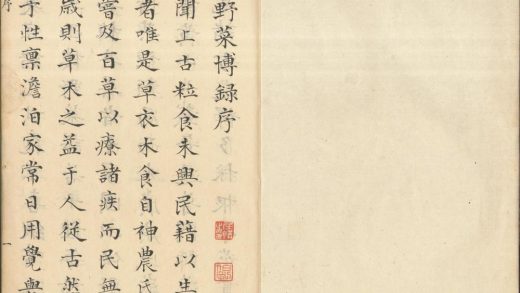 野菜博錄序
聞上古粒食未興民藉以生
者唯是草衣木食自神農氏
嘗及百草以療諸疾而民無
歲則草木之益于人從古然
予性稟澹泊家常日用覺與
序
一